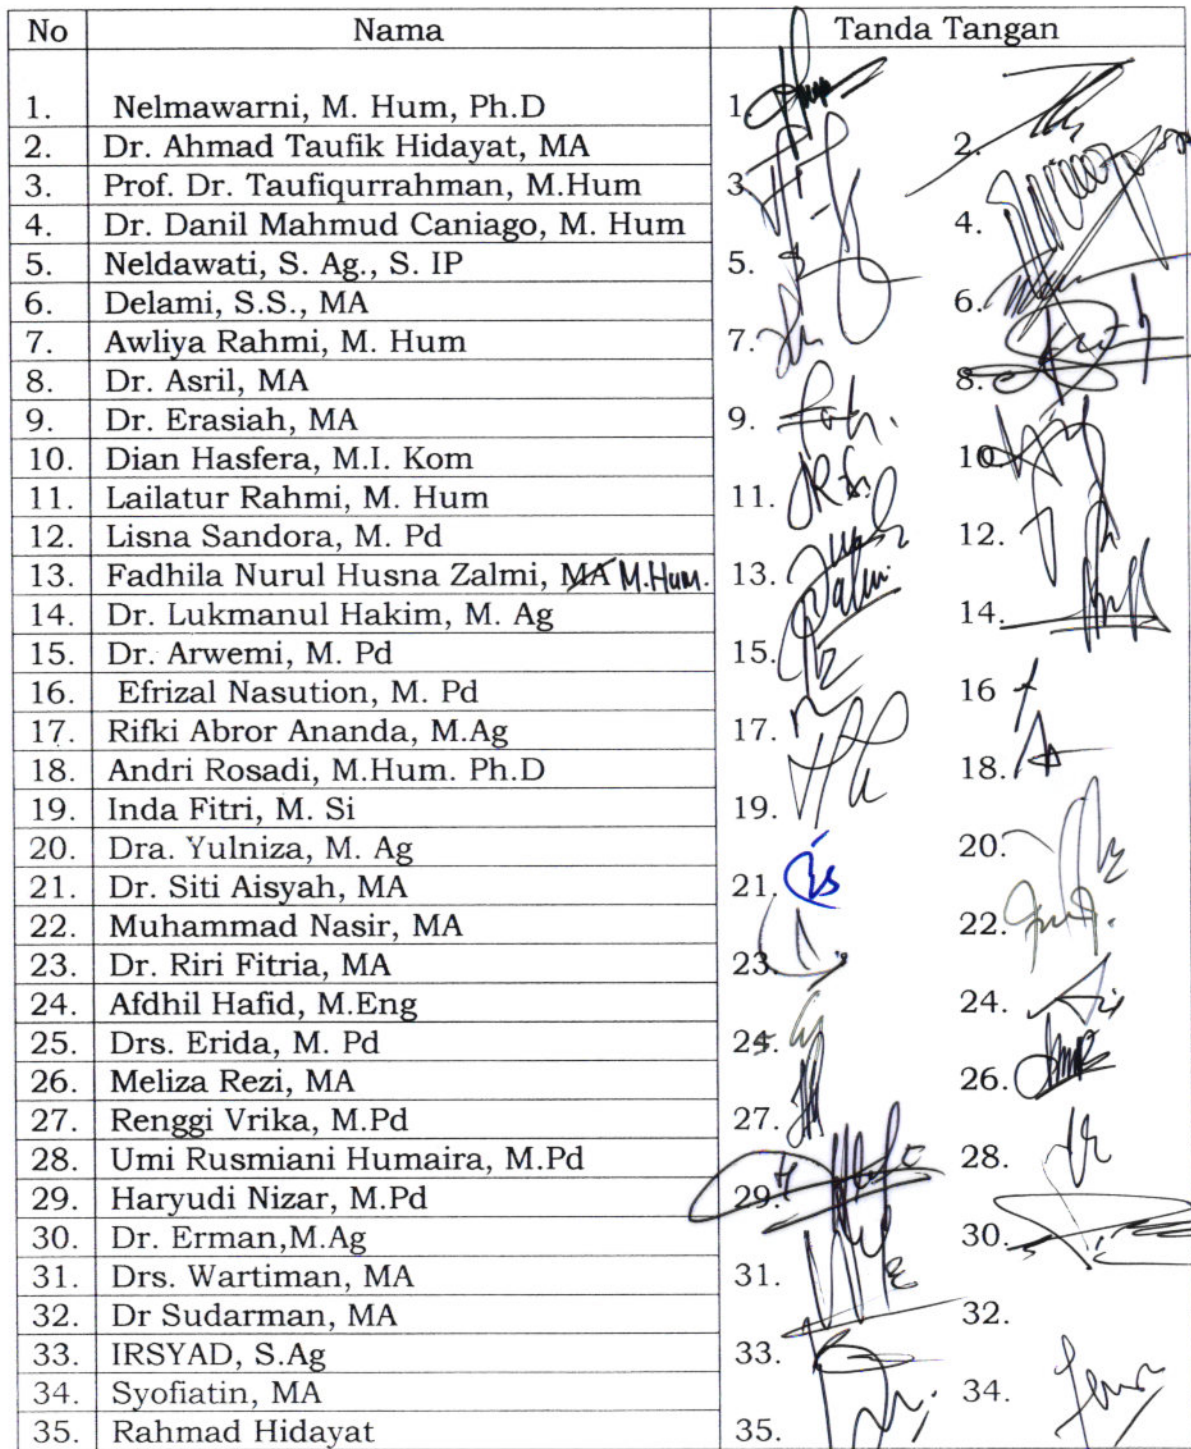 No Nama Tanda Tangan
1. Nelmawarni, M. Hum, Ph.D 1.
2. Dr. Ahmad Taufik Hidayat, MA 2.
3. Prof. Dr. Taufiqurrahman, M.Hum 3
4. Dr. Danil Mahmud Caniago, M. Hum 4.
5. Neldawati, S. Ag., S. IP 5.
6. Delami, S.S., MA 6.
7. Awliya Rahmi, M. Hum 7.
8. Dr. Asril, MA 8.
9. Dr. Erasiah, MA 9.
10. Dian Hasfera, M.I. Kom 10
11. Lailatur Rahmi, M. Hum 11.
12. Lisna Sandora, M. Pd 12.
13. Fadhila Nurul Husna Zalmi, MA M.Hum. 13.
14. Dr. Lukmanul Hakim, M. Ag 14.
15. Dr. Arwemi, M. Pd 15.
16. Efrizal Nasution, M. Pd 16
17. Rifki Abror Ananda, M.Ag 17.
18. Andri Rosadi, M.Hum. Ph.D 18.
19. Inda Fitri, M. Si 19.
20. Dra. Yulniza, M. Ag 20.
21. Dr. Siti Aisyah, MA 21.
22. Muhammad Nasir, MA 22.
23. Dr. Riri Fitria, MA 23.
24. Afdhil Hafid, M.Eng 24.
25. Drs. Erida, M. Pd
26. Meliza Rezi, MA 26.
27. Renggi Vrika, M.Pd 27.
28. Umi Rusmiani Humaira, M.Pd 28.
29. Haryudi Nizar, M.Pd 29.
30. Dr. Erman,M.Ag 30.
31. Drs. Wartiman, MA 31.
32. Dr Sudarman, MA 32.
33. IRSYAD, S.Ag 33.
34. Syofiatin, MA 34.
35. Rahmad Hidayat 35.